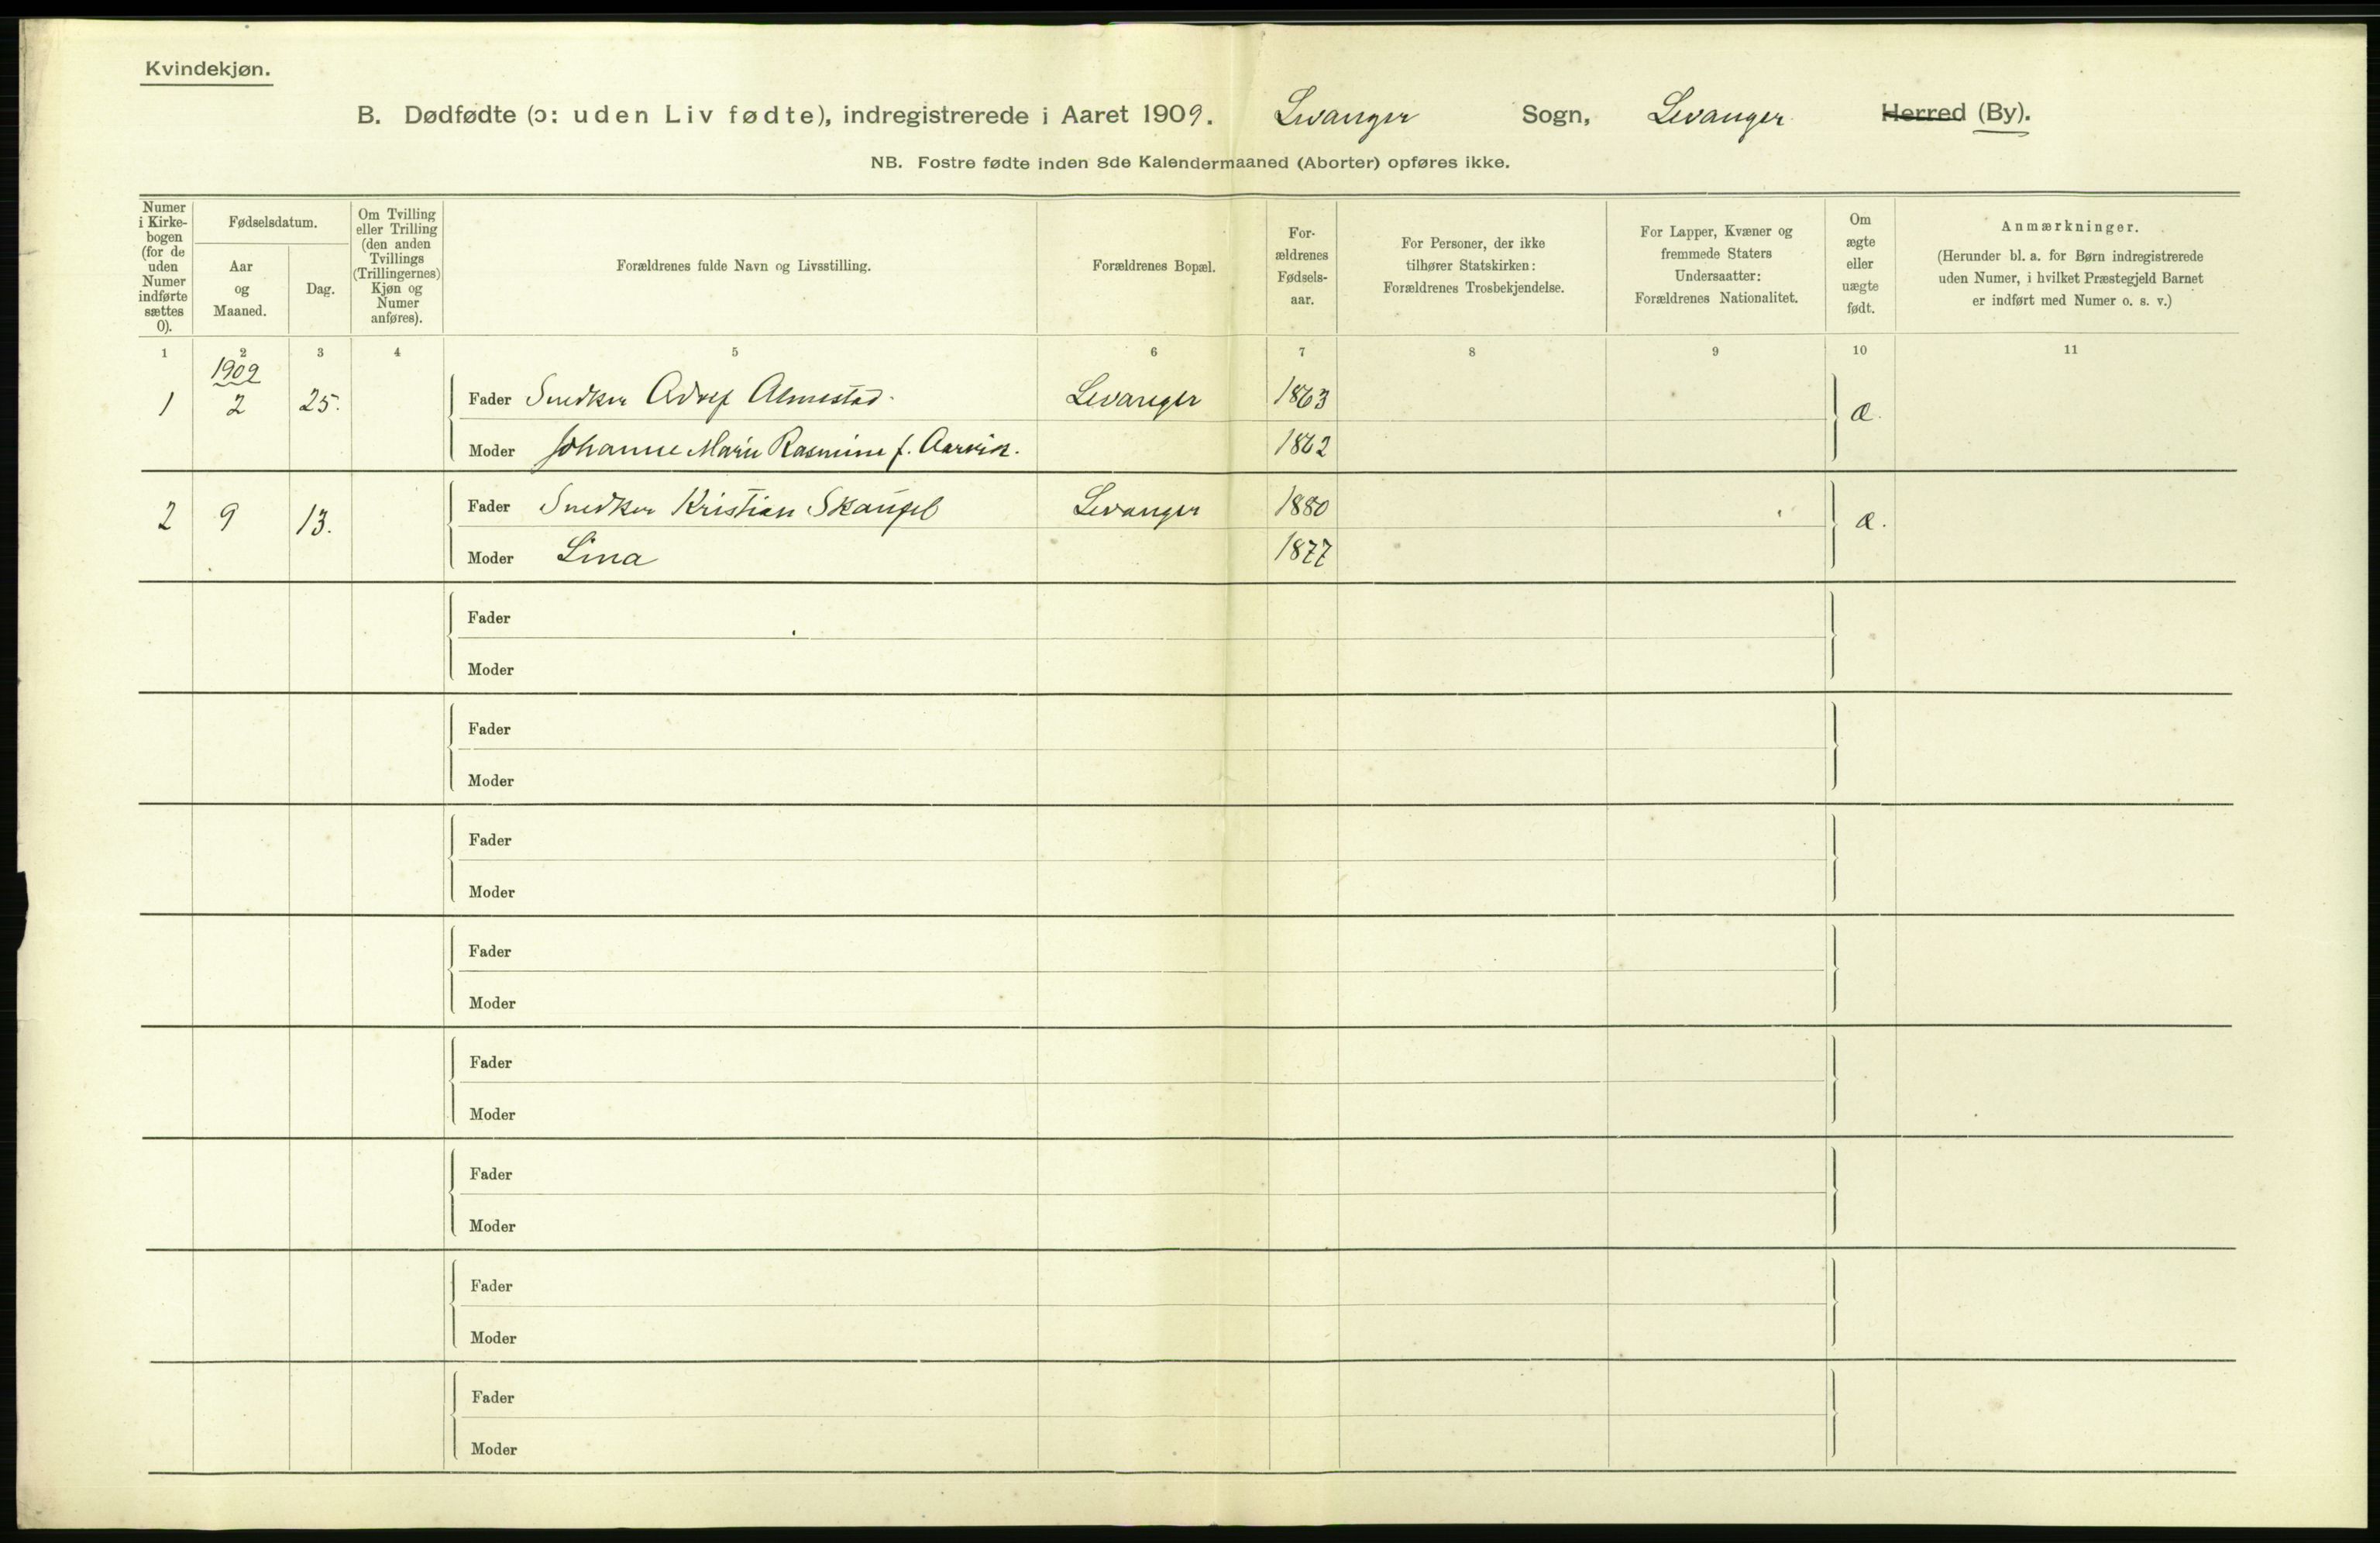 Kvindekjøn.
B. Dødfødte (ɔ: uden Liv fødte), indregistrerede i Aaret 1909. Levanger Sogn, Levanger Herred (By).
NB. Fostre fødte inden 8de Kalendermaaned (Aborter) opføres ikke.
Numer i Kirke-bogen (for de uden Numer indførte sættes 0).
Fødselsdatum.
Aar og Maaned.
Dag.
Om Tvilling eller Trilling (den anden Tvillings (Trillingernes) Kjøn og Numer anføres).
Forældrenes fulde Navn og Livsstilling.
Forældrenes Bopæl.
For-ældrenes Fødsels-aar.
For Personer, der ikke tilhører Statskirken: Forældrenes Trosbekjendelse.
For Lapper, Kvæner og fremmede Staters Undersaatter: Forældrenes Nationalitet.
Om ægte eller uægte født.
Anmærkninger.
(Herunder bl. a. for Børn indregistrerede uden Numer, i hvilket Præstegjeld Barnet er indført med Numer o. s. v.)
1 2 3 4 5 6 7 8 9 10 11
1909
1 2 25. Fader Snedker Adolf Almestad. Levanger 1863 æ.
Moder Johanne Marie Rasmine f. Aarvik. 1862
2 9 13. Fader Snedker Kristian Skaufel Levanger 1880 æ.
Moder Lina 1877
Fader
Moder
Fader
Moder
Fader
Moder
Fader
Moder
Fader
Moder
Fader
Moder
Fader
Moder
Fader
Moder